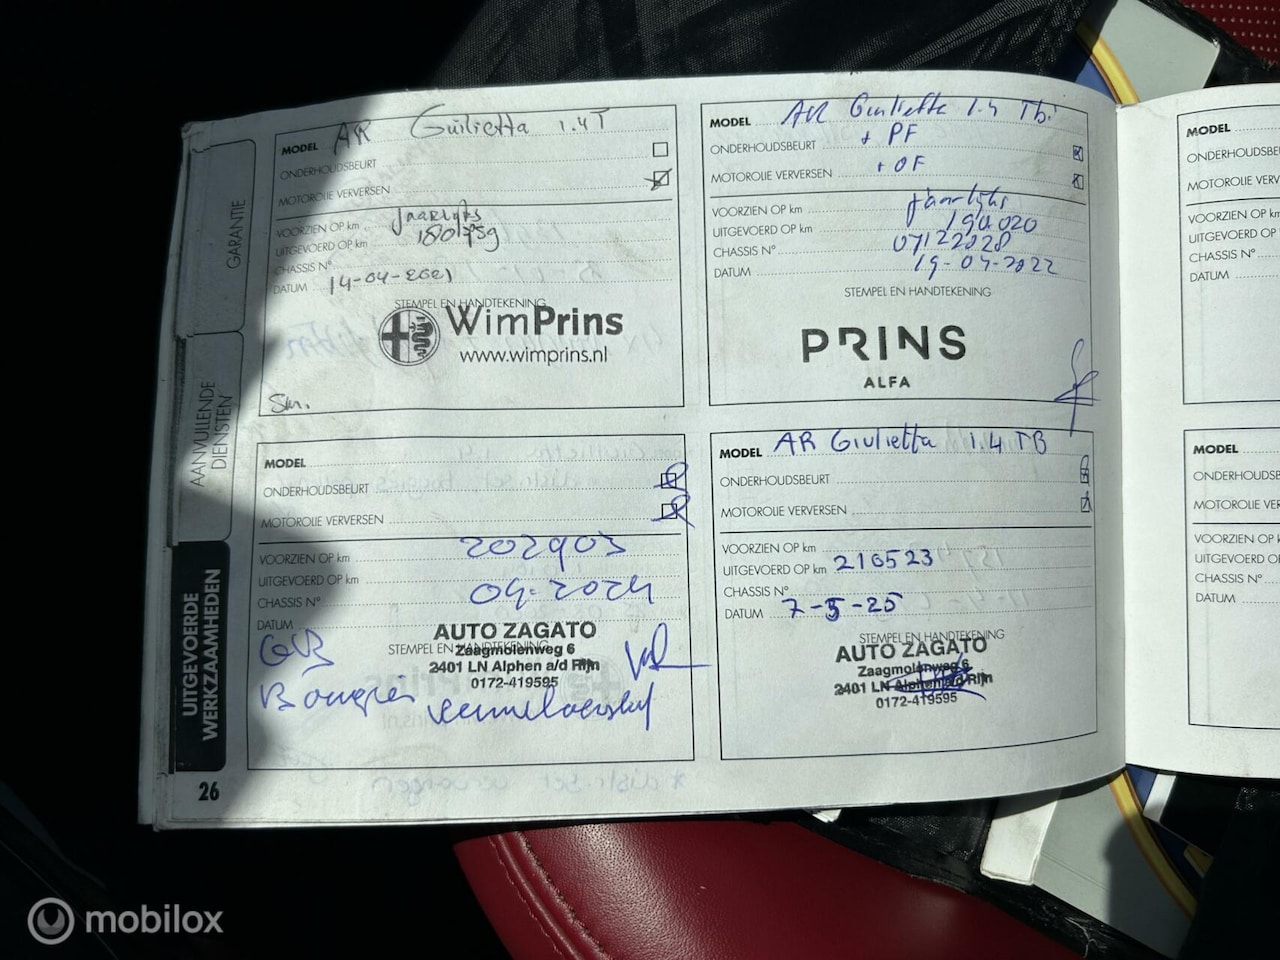 GARANTIE
AANVULLENDE
DIENSTEN
UITGEVOERDE
WERKZAAMHEDEN
26
MODEL AR Guilietta 1.4T
ONDERHOUDSBEURT
MOTOROLIE VERVERSEN
VOORZIEN OP km Jaarlijks
UITGEVOERD OP km 180759
CHASSIS N°
DATUM 14-04-2021
STEMPEL EN HANDTEKENING
WimPrins
www.wimprins.nl
Sm.
MODEL AR Giulietta 1.4 Tbi
ONDERHOUDSBEURT + PF
MOTOROLIE VERVERSEN + OF
VOORZIEN OP km jaarlijks
UITGEVOERD OP km 194020
CHASSIS N° 07122028
DATUM 19-04-2022
STEMPEL EN HANDTEKENING
PRINS
ALFA
MODEL
ONDERHOUDSBEURT
MOTOROLIE VERVERSEN
VOORZIEN OP km 202903
UITGEVOERD OP km
CHASSIS N° 04-2024
DATUM
STEMPEL EN HANDTEKENING
AUTO ZAGATO
Zaagmolenweg 6
2401 LN Alphen a/d Rijn
0172-419595
MODEL AR Giulietta 1.4 TB
ONDERHOUDSBEURT
MOTOROLIE VERVERSEN
VOORZIEN OP km
UITGEVOERD OP km 210523
CHASSIS N°
DATUM 7-5-25
STEMPEL EN HANDTEKENING
AUTO ZAGATO
Zaagmolenweg 6
2401 LN Alphen a/d Rijn
0172-419595
MODEL
ONDERHOUDSBE
MOTOROLIE VERV
VOORZIEN OP k
UITGEVOERD OP
CHASSIS N°
DATUM
MODEL
ONDERHOUDSB
MOTOROLIE VER
VOORZIEN OP k
UITGEVOERD O
CHASSIS N°
DATUM
mobilox